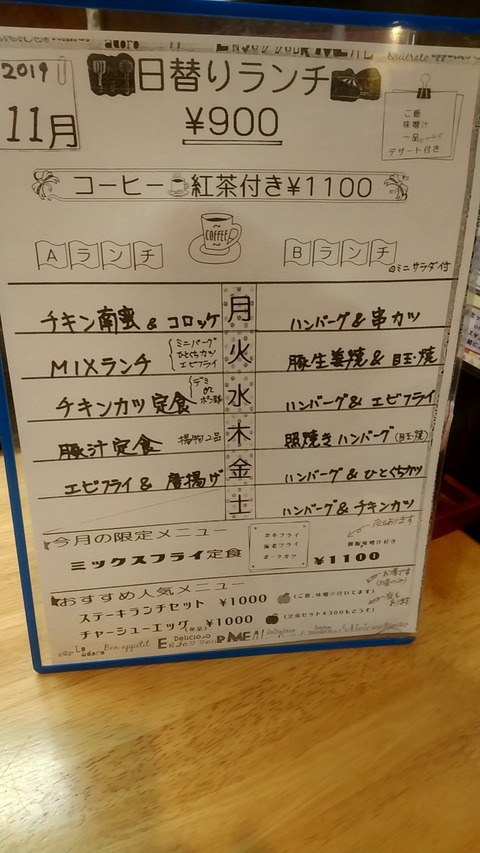 2019
11月
日替りランチ
¥900
ご飯
味噌汁
一品
デザート付き
コーヒー 紅茶付き¥1100
COFFEE
Aランチ
Bランチ
ミニサラダ付
チキン南蛮 & コロッケ 月 ハンバーグ & 串カツ
MIXランチ ミニバーグ ひとくちカツ エビフライ 火 豚生姜焼 & 目玉焼
チキンカツ定食 デミ or ポン酢 水 ハンバーグ & エビフライ
豚汁定食 揚物2品 木 照焼きハンバーグ(目玉焼)
エビフライ & 唐揚げ 金 ハンバーグ & ひとくちカツ
土 ハンバーグ & チキンカツ
今月の限定メニュー
カキフライ
海老フライ
ポークカツ
夜もあります
御飯味噌汁付き
ミックスフライ定食 ¥1100
おすすめ人気メニュー
ステーキランチセット ¥1000 (ご飯、味噌汁付いてます)
チャーシューエッグ(単品) ¥1000 (定食セット¥300もどうぞ)
Bon appétit
Delicioso